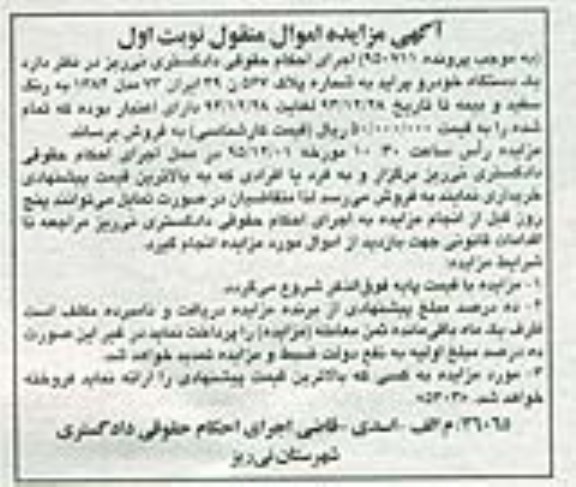 آگهی مزایده اموال منقول نوبت اول
(به موجب پرونده ۹۵۰۷۱۱) اجرای احکام حقوقی دادگستری نی‌ریز در نظر دارد
یک دستگاه خودرو پراید به شماره پلاک ۵۳۷ ن ۳۹ ایران ۷۳ مدل ۱۳۸۴ به رنگ
سفید و بیمه تا تاریخ ۹۳/۱۲/۲۸ لغایت ۹۴/۱۲/۲۸ دارای اعتبار بوده که تمام
شده را به قیمت ۵۰/۰۰۰/۰۰۰ ریال (قیمت کارشناسی) به فروش برساند.
مزایده رأس ساعت ۱۰:۳۰ مورخه ۹۵/۱۲/۰۱ در محل اجرای احکام حقوقی
دادگستری نی‌ریز برگزار و به فرد یا افرادی که به بالاترین قیمت پیشنهادی
خریداری نمایند به فروش می‌رسد لذا متقاضیان در صورت تمایل می‌توانند پنج
روز قبل از انجام مزایده به اجرای احکام حقوقی دادگستری نی‌ریز مراجعه تا
اقدامات قانونی جهت بازدید از اموال مورد مزایده انجام گیرد.
شرایط مزایده:
۱- مزایده با قیمت پایه فوق‌الذکر شروع می‌گردد.
۲- ده درصد مبلغ پیشنهادی از برنده مزایده دریافت و نامبرده مکلف است
ظرف یک ماه باقی‌مانده ثمن معامله (مزایده) را پرداخت نماید در غیر این صورت
ده درصد مبلغ اولیه به نفع دولت ضبط و مزایده تمدید خواهد شد.
۳- مورد مزایده به کسی که بالاترین قیمت پیشنهادی را ارائه نماید فروخته
خواهد شد. «۵۳۰۳»
۳۶۰۶۵/ م الف -اسدی -قاضی اجرای احکام حقوقی دادگستری
شهرستان نی‌ریز